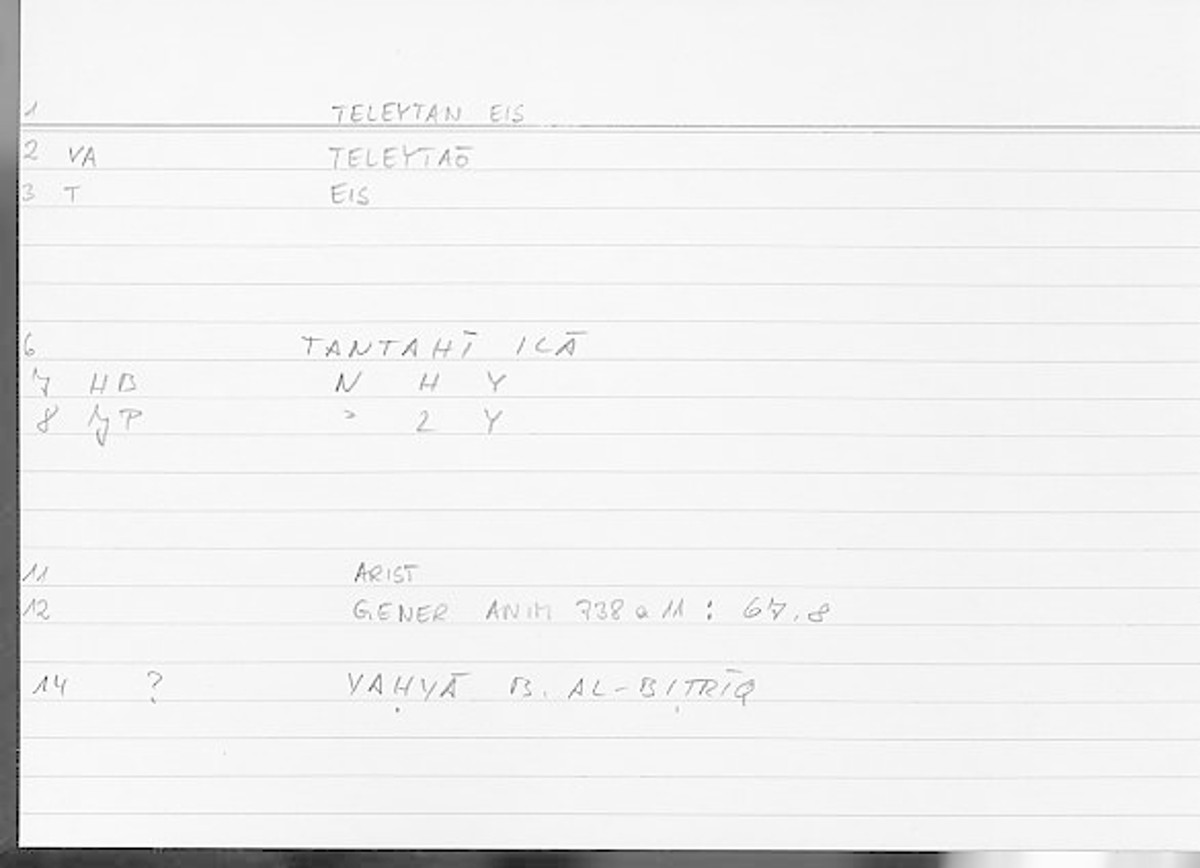 1 TELEYTAN EIS
2 VA TELEYTAŌ
3 T EIS
6 TANTAHĪ ILĀ
7 HB N H Y
8 JP > 2 Y
11 ARIST
12 GENER ANIM 738 a 11 : 67.8
14 ? YAḤYĀ B. AL-BIṬRĪQ